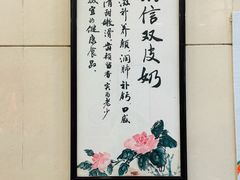 信双皮奶
滋补养颜,润肺补钙,口感
清甜嫩滑,齿颊留香,实为老少
咸宜的健康食品。